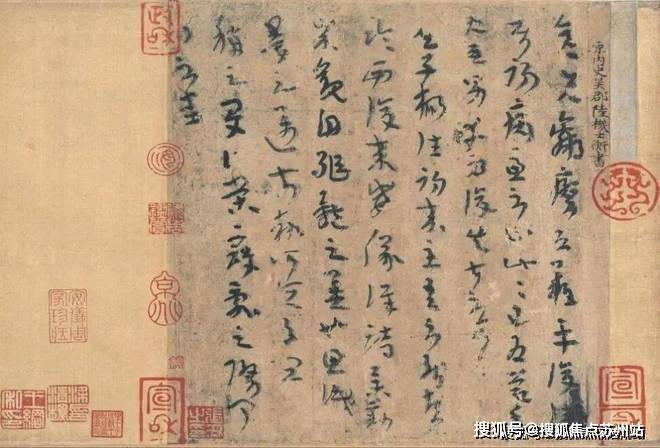 晉內史吳郡陸機士衡書
彥先羸瘵恐難平復往屬
初病慮不止此此已為慶承
使男幸為復失前憂耳吳
子楊往初來主吾不能盡
臨西復來威儀詳跱舉動
成觀自軀體之美也思識
量之邁前執所恒有宜
稱之夏伯榮寇亂之際聞
問不悉
政和
宣和
宣和
安儀周家珍藏
搜狐号@搜狐焦点苏州站